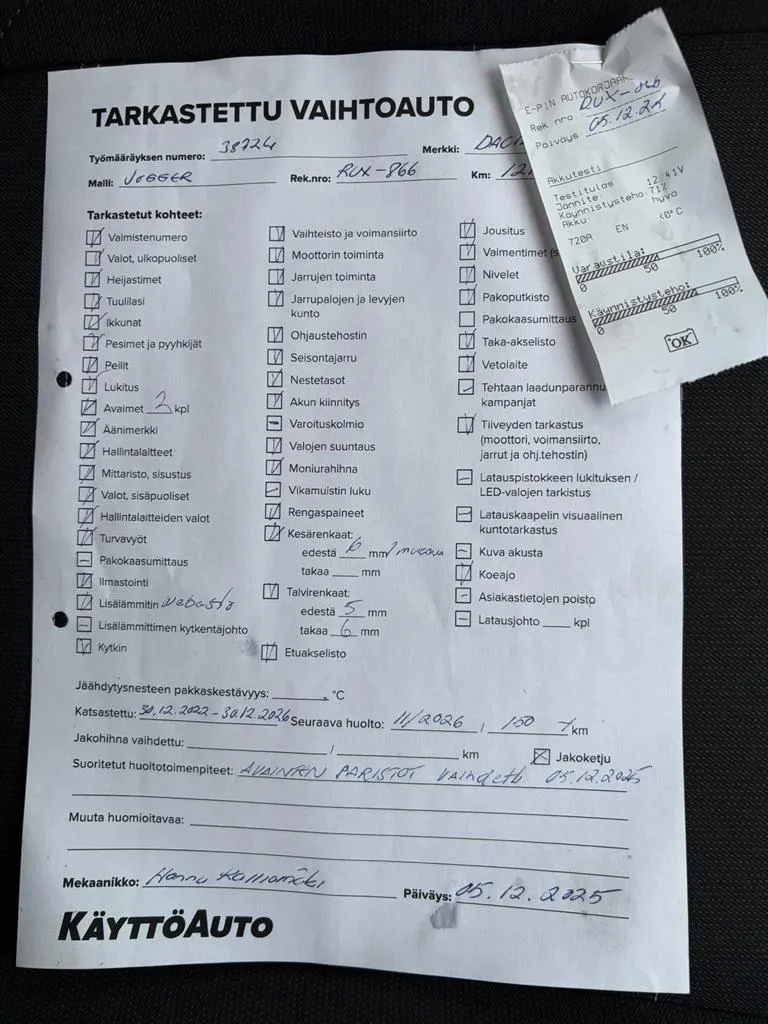 TARKASTETTU VAIHTOAUTO
Työmääräyksen numero: 38724 Merkki: DACI
Malli: JOGGER Rek.nro: RUX-866 Km: 12
Tarkastetut kohteet:
Valmistenumero
Valot, ulkopuoliset
Heijastimet
Tuulilasi
Ikkunat
Pesimet ja pyyhkijät
Peilit
Lukitus
Avaimet 2 kpl
Äänimerkki
Hallintalaitteet
Mittaristo, sisustus
Valot, sisäpuoliset
Hallintalaitteiden valot
Turvavyöt
Pakokaasumittaus
Ilmastointi
Lisälämmitin Webasto
Lisälämmittimen kytkentäjohto
Kytkin
Vaihteisto ja voimansiirto
Moottorin toiminta
Jarrujen toiminta
Jarrupalojen ja levyjen
kunto
Ohjaustehostin
Seisontajarru
Nestetasot
Akun kiinnitys
Varoituskolmio
Valojen suuntaus
Moniurahihna
Vikamuistin luku
Rengaspaineet
Kesärenkaat:
edestä 6 mm
takaa mm
Talvirenkaat:
edestä 5 mm
takaa 6 mm
Etuakselisto
Jousitus
Vaimentimet (s
Nivelet
Pakoputkisto
Pakokaasumittaus
Taka-akselisto
Vetolaite
Tehtaan laadunparannu
kampanjat
Tiiveyden tarkastus
(moottori, voimansiirto,
jarrut ja ohj.tehostin)
Latauspistokkeen lukituksen /
LED-valojen tarkistus
Latauskaapelin visuaalinen
kuntotarkastus
Kuva akusta
Koeajo
Asiakastietojen poisto
Latausjohto kpl
Jäähdytysnesteen pakkaskestävyys: °C
Katsastettu: 30.12.2022-30.12.2026 Seuraava huolto: 11/2026 / 150 km
Jakohihna vaihdettu: / km Jakoketju
Suoritetut huoltotoimenpiteet: AVAINTEN PARISTOT Vaihdettu 05.12.2025
Muuta huomioitavaa:
Mekaanikko: Hannu Kalliomäki Päiväys: 05.12.2025
KÄYTTÖAUTO
E-P:N AUTOKORJAAM
Rek nro. RUX-866
Päiväys 05.12.25
Akkutesti
Testitulos
Jännite 12.41V
Käynnistysteho 71%
Akku: hyvä
720A EN <0°C
Varaustila:
0 50 100%
Käynnistysteho:
0 50 100%
OK